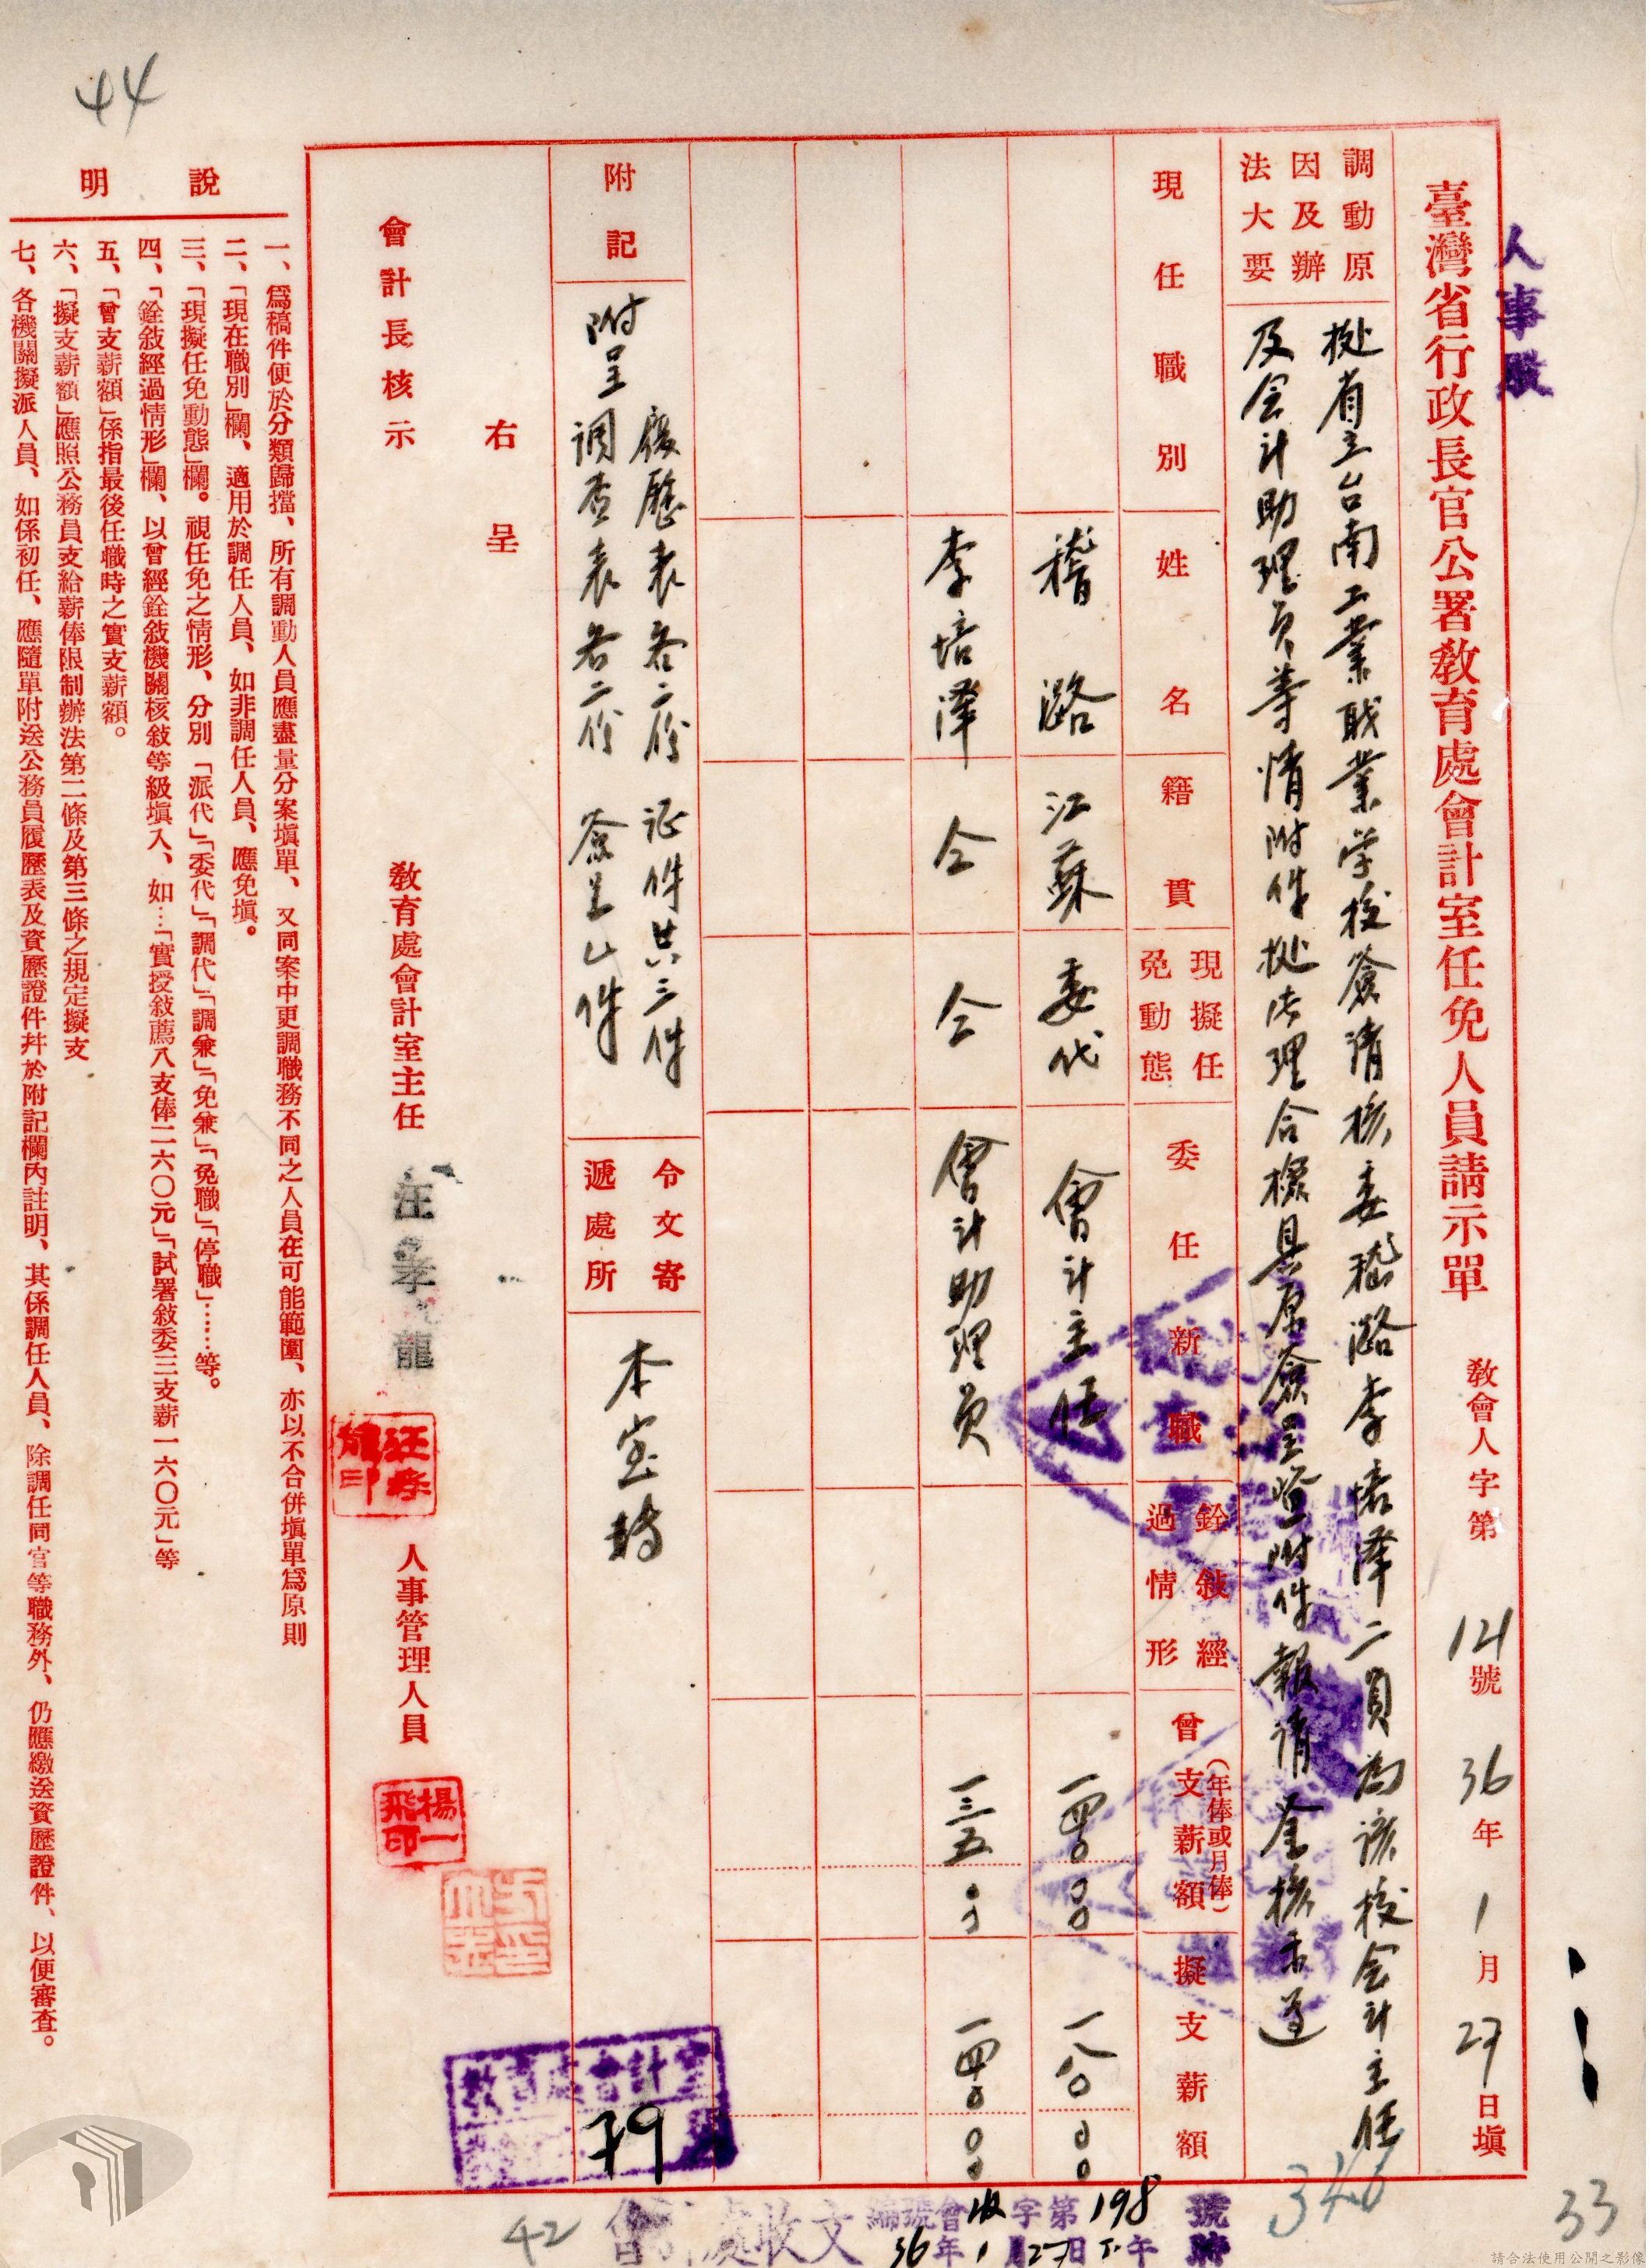 人事
臺灣省行政長官公署教育處會計室任免人員請示單
教會人字第121號
36年1月27日填
調動原因及辦法大要
据省立台南工業職業学校簽請核委嵇潞李培澤二員為該校会計主任
及会計助理員等情附件据此理合檢具原簽呈暨附件報請鉴核示遵
現任職別
姓名
籍貫
現擬任免動態
委任新職
銓敍經過情形
曾支薪額(年俸或月俸)
擬支薪額
嵇潞
江蘇
委代
會計主任
一四〇 〇〇
一八〇 〇〇
李培澤
仝
仝
會計助理員
一三五 〇〇
一四〇 〇〇
附記
附呈
履歷表各二份 証件共三件
調查表各二份 簽呈乙件
令文寄遞處所
本室轉
右呈
會計長核示
教育處會計室主任 汪孝龍
汪孝龍印
人事管理人員
楊一飛印
教育處會計室
79
說明
一、爲稿件便於分類歸擋、所有調動人員應盡量分案填單、又同案中更調職務不同之人員在可能範圍、亦以不合併填單爲原則
二、「現在職別」欄、適用於調任人員、如非調任人員、應免填。
三、「現擬任免動態」欄。視任免之情形、分別「派代」「委代」「調代」「調兼」「免兼」「免職」「停職」……等。
四、「銓敍經過情形」欄、以曾經銓敍機關核敍等級填入、如…「實授敍薦八支俸二六〇元」「試署敍委三支薪一六〇元」等
五、「曾支薪額」係指最後任職時之實支薪額。
六、「擬支薪額」應照公務員支給薪俸限制辦法第二條及第三條之規定擬支
七、各機關擬派人員、如係初任、應隨單附送公務員履歷表及資歷證件幷於附記欄內註明、其係調任人員、除調任同官等職務外、仍應繳送資歷證件、以便審查。
會計處收文
編號會收字第198號
36年1月27日 午 時
44
42
346
33
請合法使用公開之影像